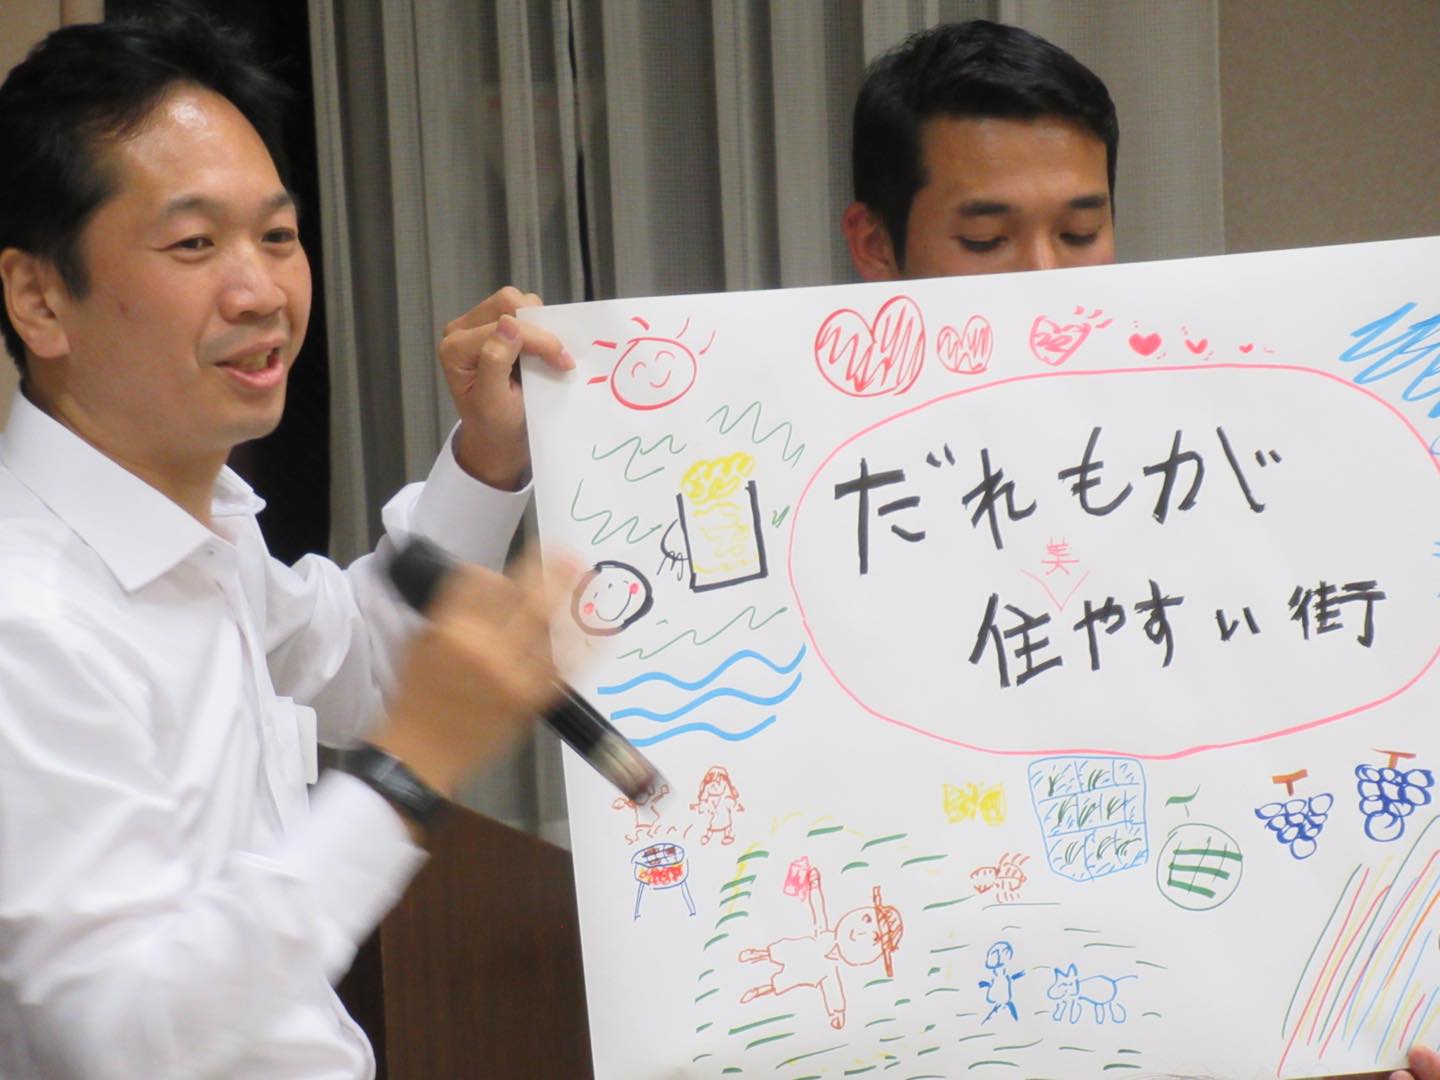 だれもが
美
住やすい街